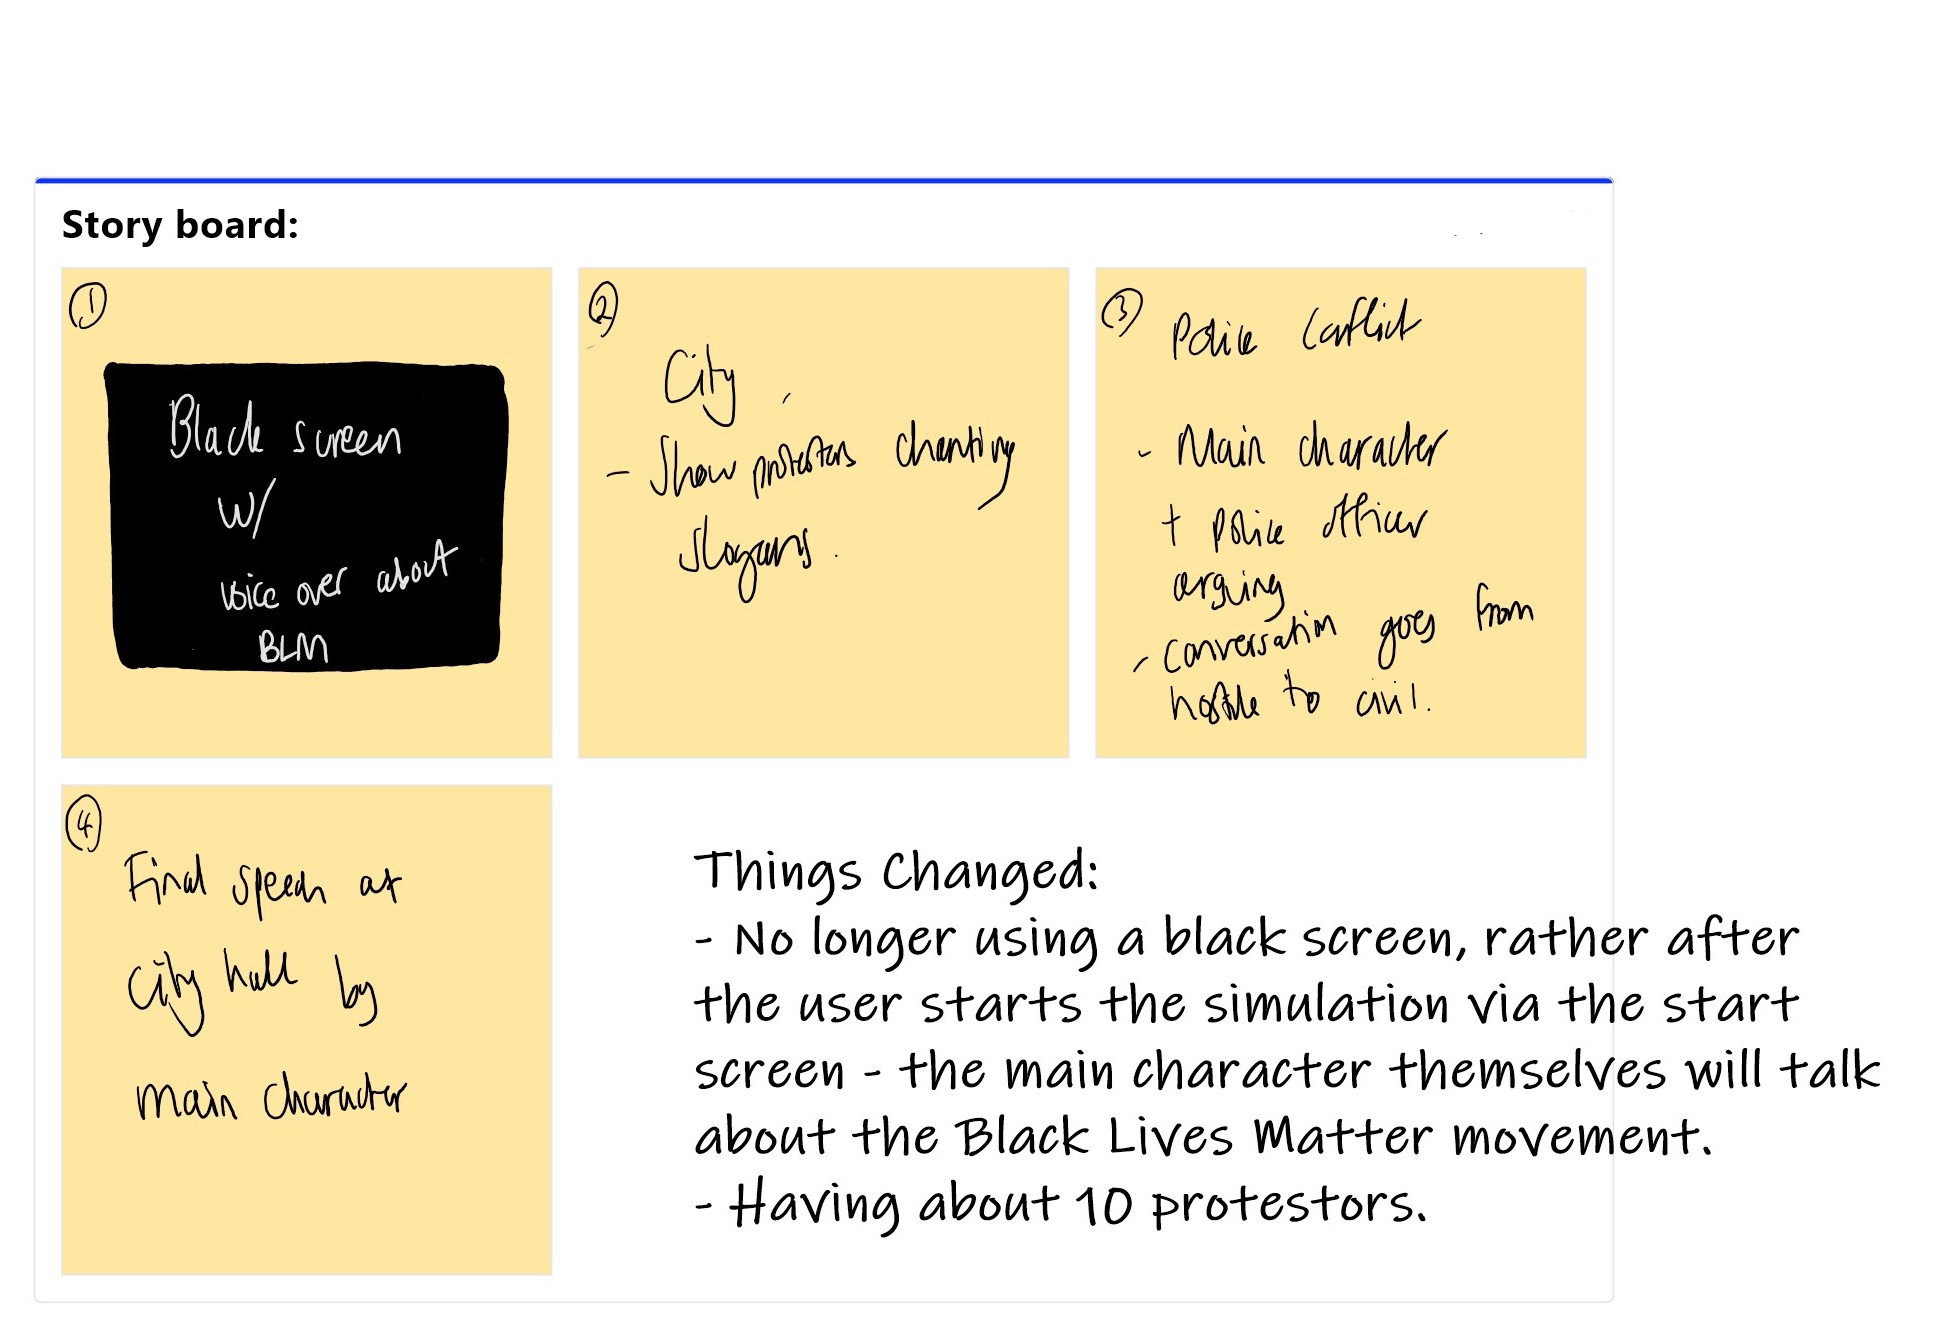 Story board:
1
Black screen
w/
voice over about
BLM
2
City
- Show protestors chanting
slogans.
3
Police Conflict
- Main character
+ police officer
arguing
- conversation goes from
hostile to civil.
4
Final speech at
City hall by
main character
Things Changed:
- No longer using a black screen, rather after
the user starts the simulation via the start
screen - the main character themselves will talk
about the Black Lives Matter movement.
- Having about 10 protestors.